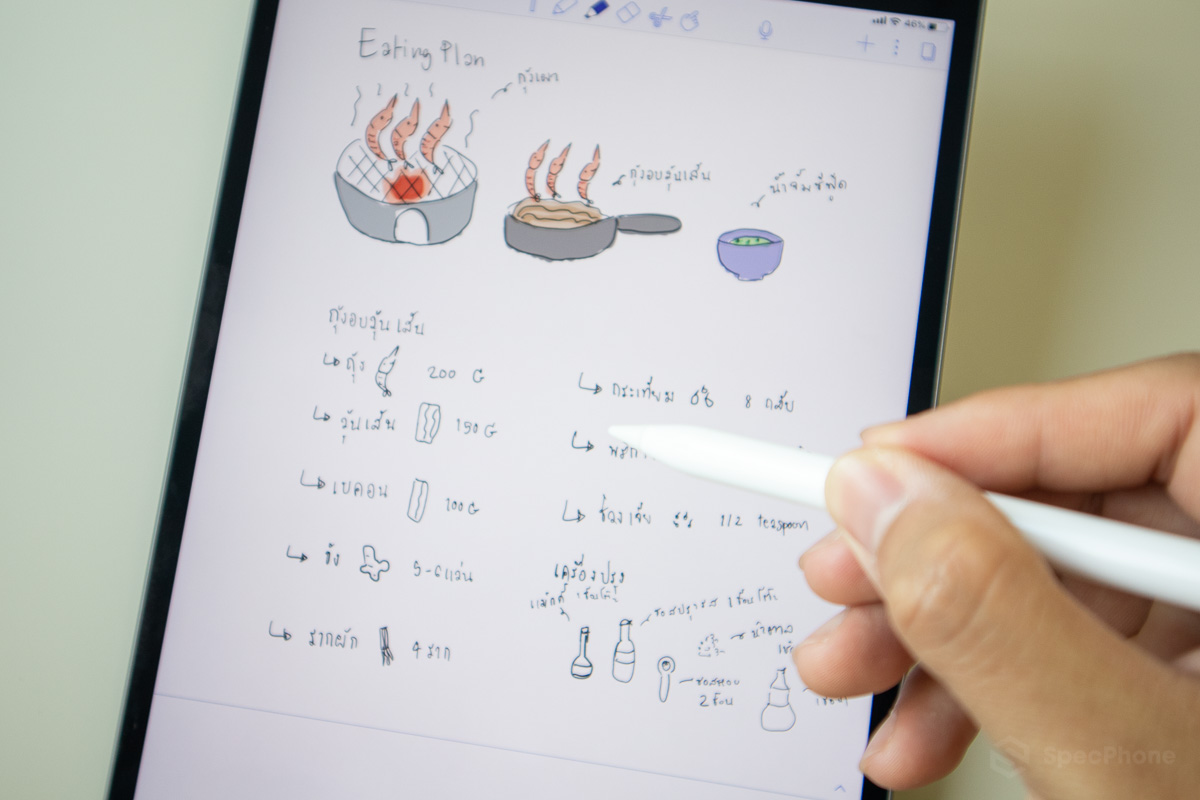 46%
Eating Plan
กุ้งเผา
กุ้งอบวุ้นเส้น
น้ำจิ้มซีฟู๊ด
กุ้งอบวุ้นเส้น
กุ้ง 200 G
วุ้นเส้น 150 G
เบคอน 100 G
ขิง 5-6 แว่น
รากผัก 4 ราก
กระเทียม 8 กลีบ
1/2 teaspoon
เครื่องปรุง
แม็กกี้ 1 ช้อนโต๊ะ
ซอสปรุงรส 1 ช้อนโต๊ะ
น้ำตาล
ซอสหอย
2 ช้อน
SpecPhone